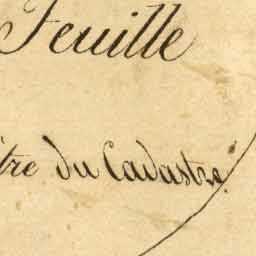 Feuille
tre du Cadastre.